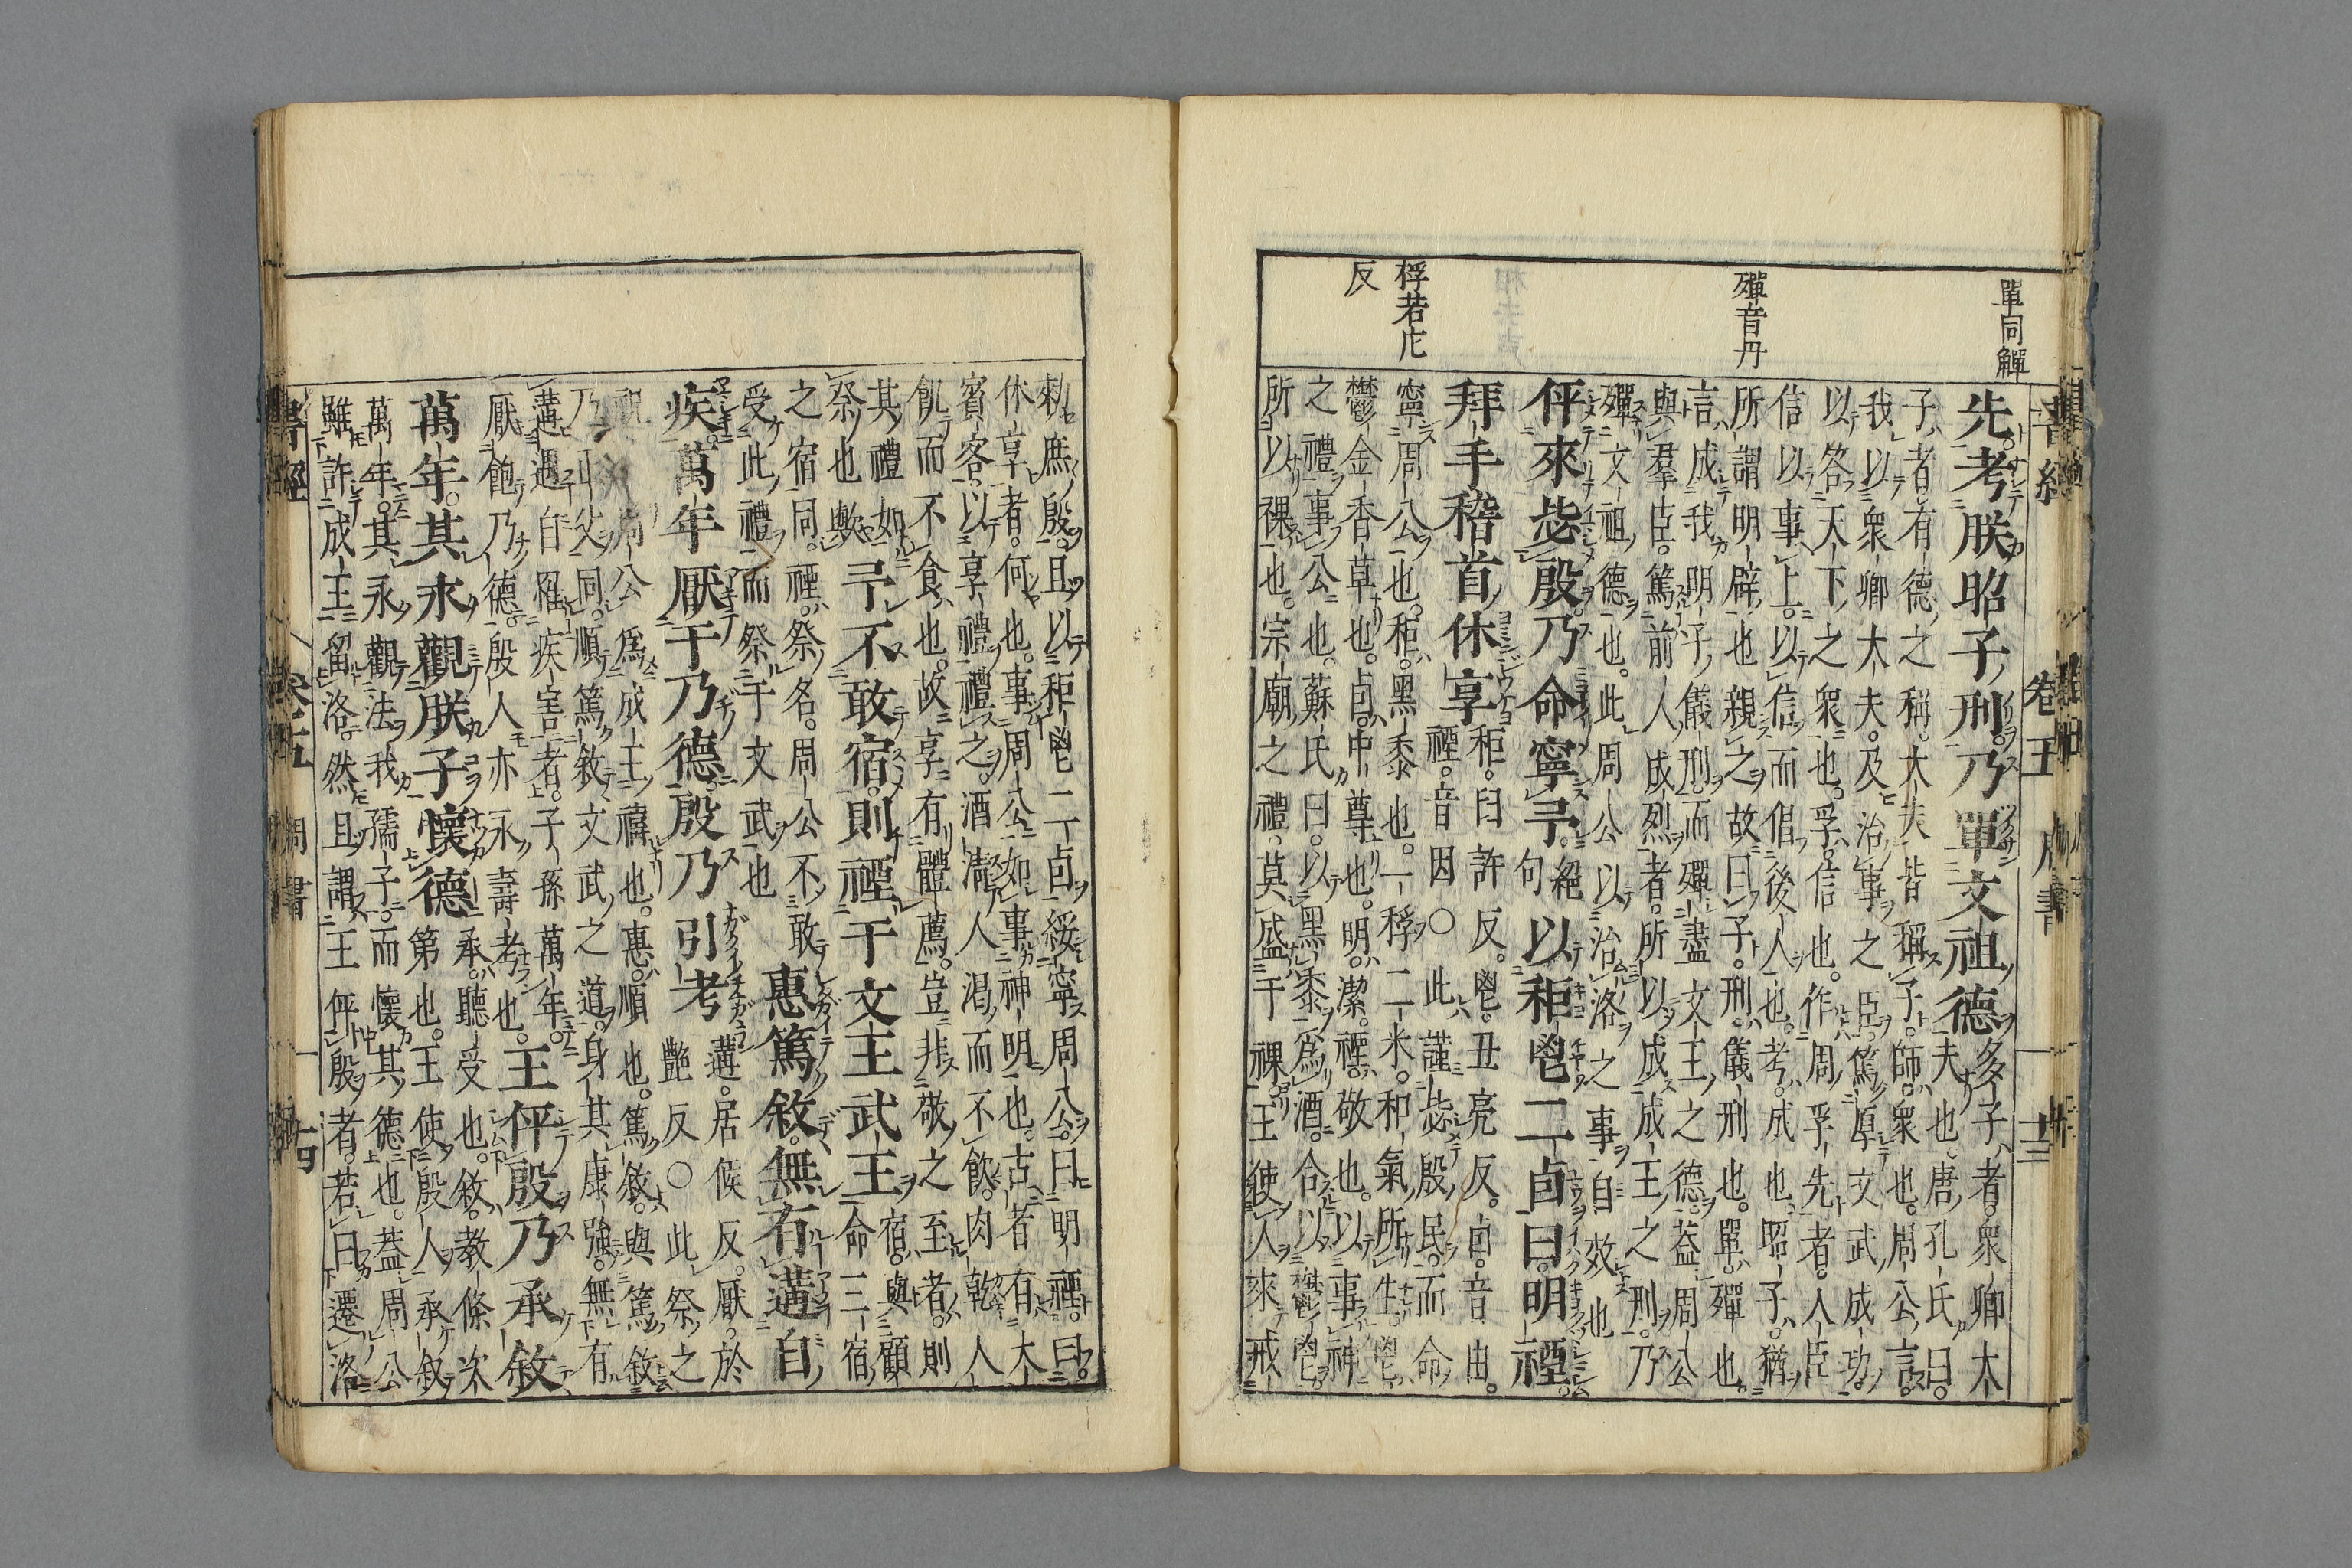 單同
殫音丹
桴若庀
反
書經 卷五 周書 十三
先考朕昭子刑乃單文祖德
多子者。衆卿大
夫也。唐孔氏曰。
子者有德之稱。大夫皆稱子。師衆也。周公言。
我以衆卿大夫。及治事之臣。篤厚文武成功。
以答天下之衆也。孚信也。作周孚先者。人臣
信以事上。以信而倡後人也。考成也。昭子猶
所謂明辟也。親之故曰子。刑儀刑也。單殫也。
言成我明子儀刑。而殫盡文王之德。蓋周公
與羣臣。篤前人成烈者。所以成成王之刑。乃
殫文祖德也。此周公以治洛之事自效也
伻來毖殷。乃命寧予。
絕
句
以秬鬯二卣曰。明禋。
拜手稽首休享
秬。臼許反。鬯。丑亮反。卣。音由。
禋。音因○此謹毖殷民。而命
寧周公也。秬。黑黍也。一稃二米。和氣所生。鬯。
鬱金香草也。卣。中尊也。明。潔。禋。敬也。以事神
之禮事公也。蘇氏曰。以黑黍爲酒。合以鬱鬯。
所以祼也。宗廟之禮。莫盛于祼。王使人來戒
勑庶殷。且以秬鬯二卣。綏寧周公。曰明禋。曰
休享者。何也。事周公。如事神明也。古者有大
賓客。以享禮禮之。酒清人渴而不飮。肉乾人
飢而不食也。故享有體薦。豈非敬之至者。則
其禮如
祭也歟
予不敢宿。則禋于文王武王
宿。與顧
命三宿
之宿同。禋。祭名。周公不敢
受此禮。而祭于文武也
惠篤敘。無有遘自
疾。萬年厭于乃德。殷乃引考
遘。居候反。厭。於
艷反○此祭之
祝周公爲成王禱也。惠。順也。篤敘。與篤敘
乃父同。順篤敘文武之道。身其康強。無有
遘遇自罹疾害者。子孫萬年。
厭飽乃德。殷人亦永壽考也。
王伻殷乃承敘
萬年。其永觀朕子懷德
承。聽受也。敘。敎條次
第也。王使殷人承敘
萬年。其永觀法我孺子。而懷其德也。蓋周公
雖許成王留洛。然且謂王伻殷者。若曰遷洛
書經 卷五 周書 十四